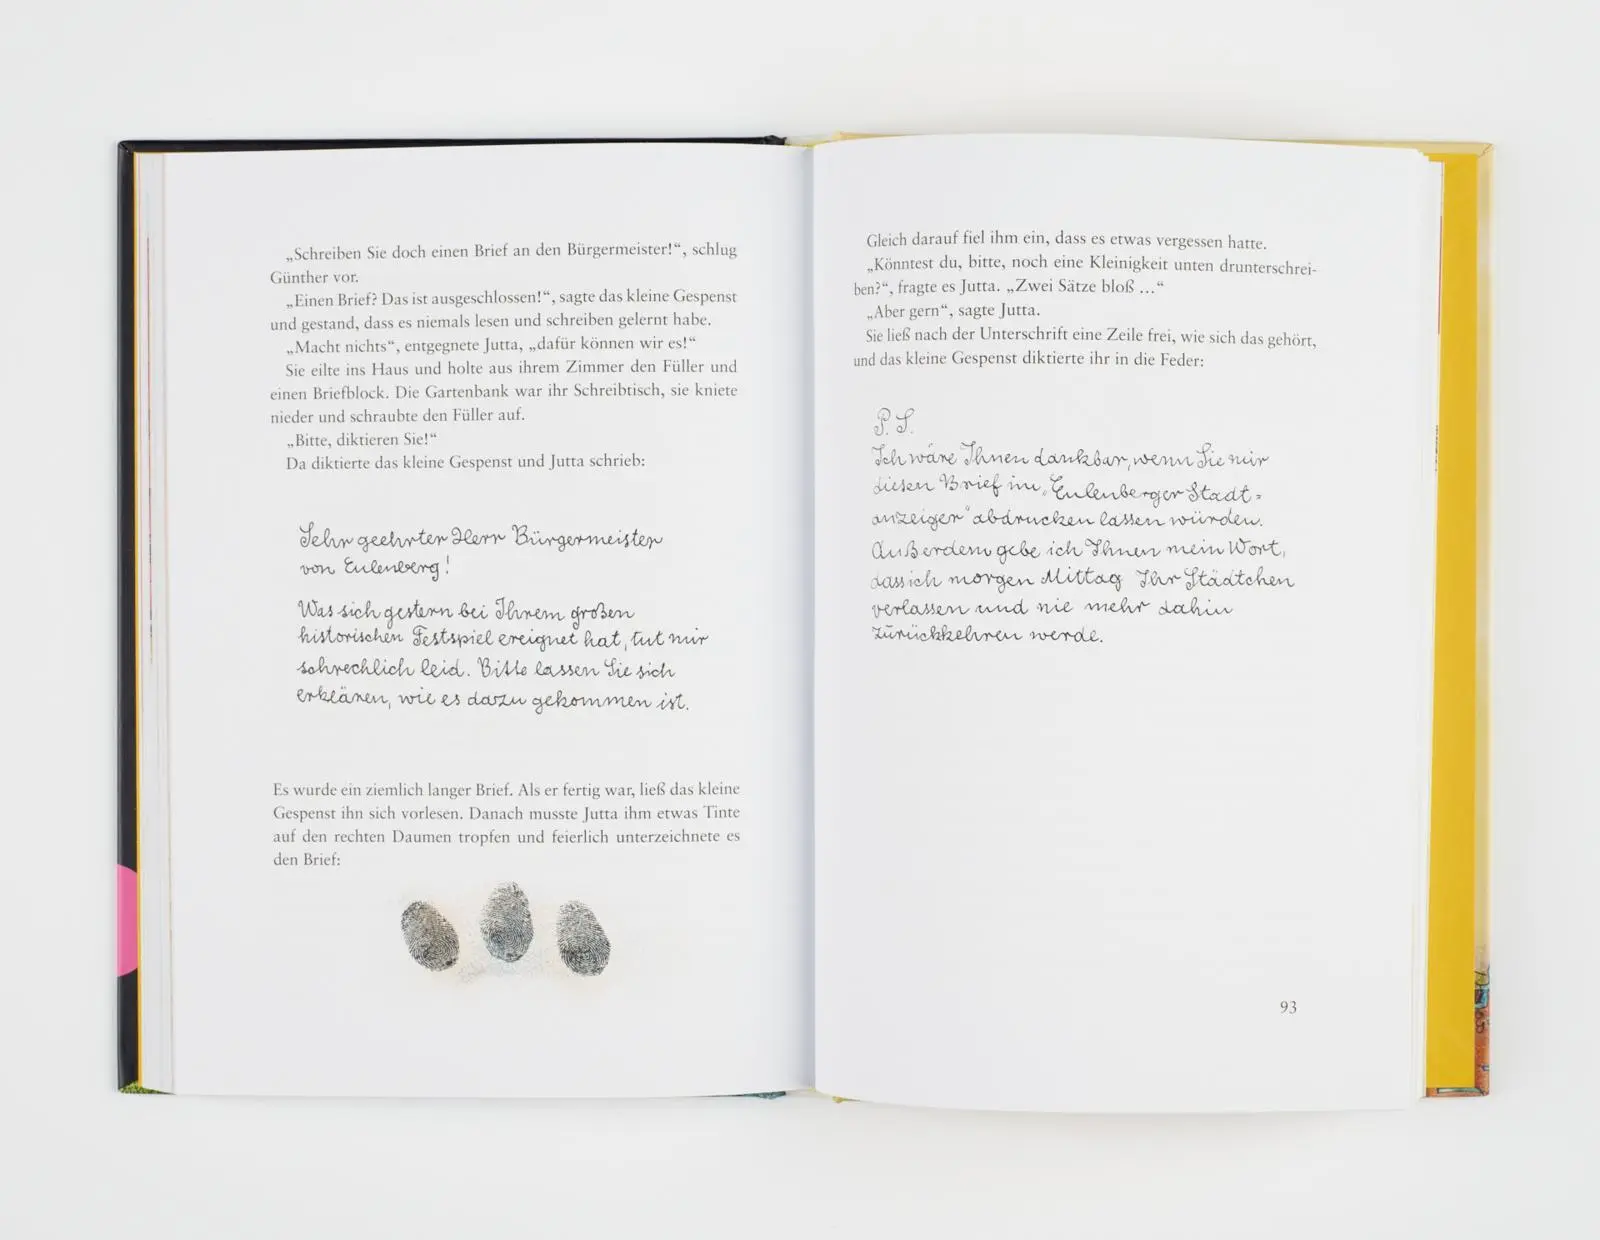 „Schreiben Sie doch einen Brief an den Bürgermeister!“, schlug
Günther vor.
„Einen Brief? Das ist ausgeschlossen!“, sagte das kleine Gespenst
und gestand, dass es niemals lesen und schreiben gelernt habe.
„Macht nichts“, entgegnete Jutta, „dafür können wir es!“
Sie eilte ins Haus und holte aus ihrem Zimmer den Füller und
einen Briefblock. Die Gartenbank war ihr Schreibtisch, sie kniete
nieder und schraubte den Füller auf.
„Bitte, diktieren Sie!“
Da diktierte das kleine Gespenst und Jutta schrieb:
Sehr geehrter Herr Bürgermeister
von Eulenberg!
Was sich gestern bei Ihrem großen
historischen Festspiel ereignet hat, tut mir
schrecklich leid. Bitte lassen Sie sich
erklären, wie es dazu gekommen ist.
Es wurde ein ziemlich langer Brief. Als er fertig war, ließ das kleine
Gespenst ihn sich vorlesen. Danach musste Jutta ihm etwas Tinte
auf den rechten Daumen tropfen und feierlich unterzeichnete es
den Brief:
Gleich darauf fiel ihm ein, dass es etwas vergessen hatte.
„Könntest du, bitte, noch eine Kleinigkeit unten drunterschrei-
ben?“, fragte es Jutta. „Zwei Sätze bloß ...“
„Aber gern“, sagte Jutta.
Sie ließ nach der Unterschrift eine Zeile frei, wie sich das gehört,
und das kleine Gespenst diktierte ihr in die Feder:
P. S.
Ich wäre Ihnen dankbar, wenn Sie mir
diesen Brief im „Eulenberger Stadt=
anzeiger“ abdrucken lassen würden.
Außerdem gebe ich Ihnen mein Wort,
dass ich morgen Mittag Ihr Städtchen
verlassen und nie mehr dahin
zurückkehren werde.
93